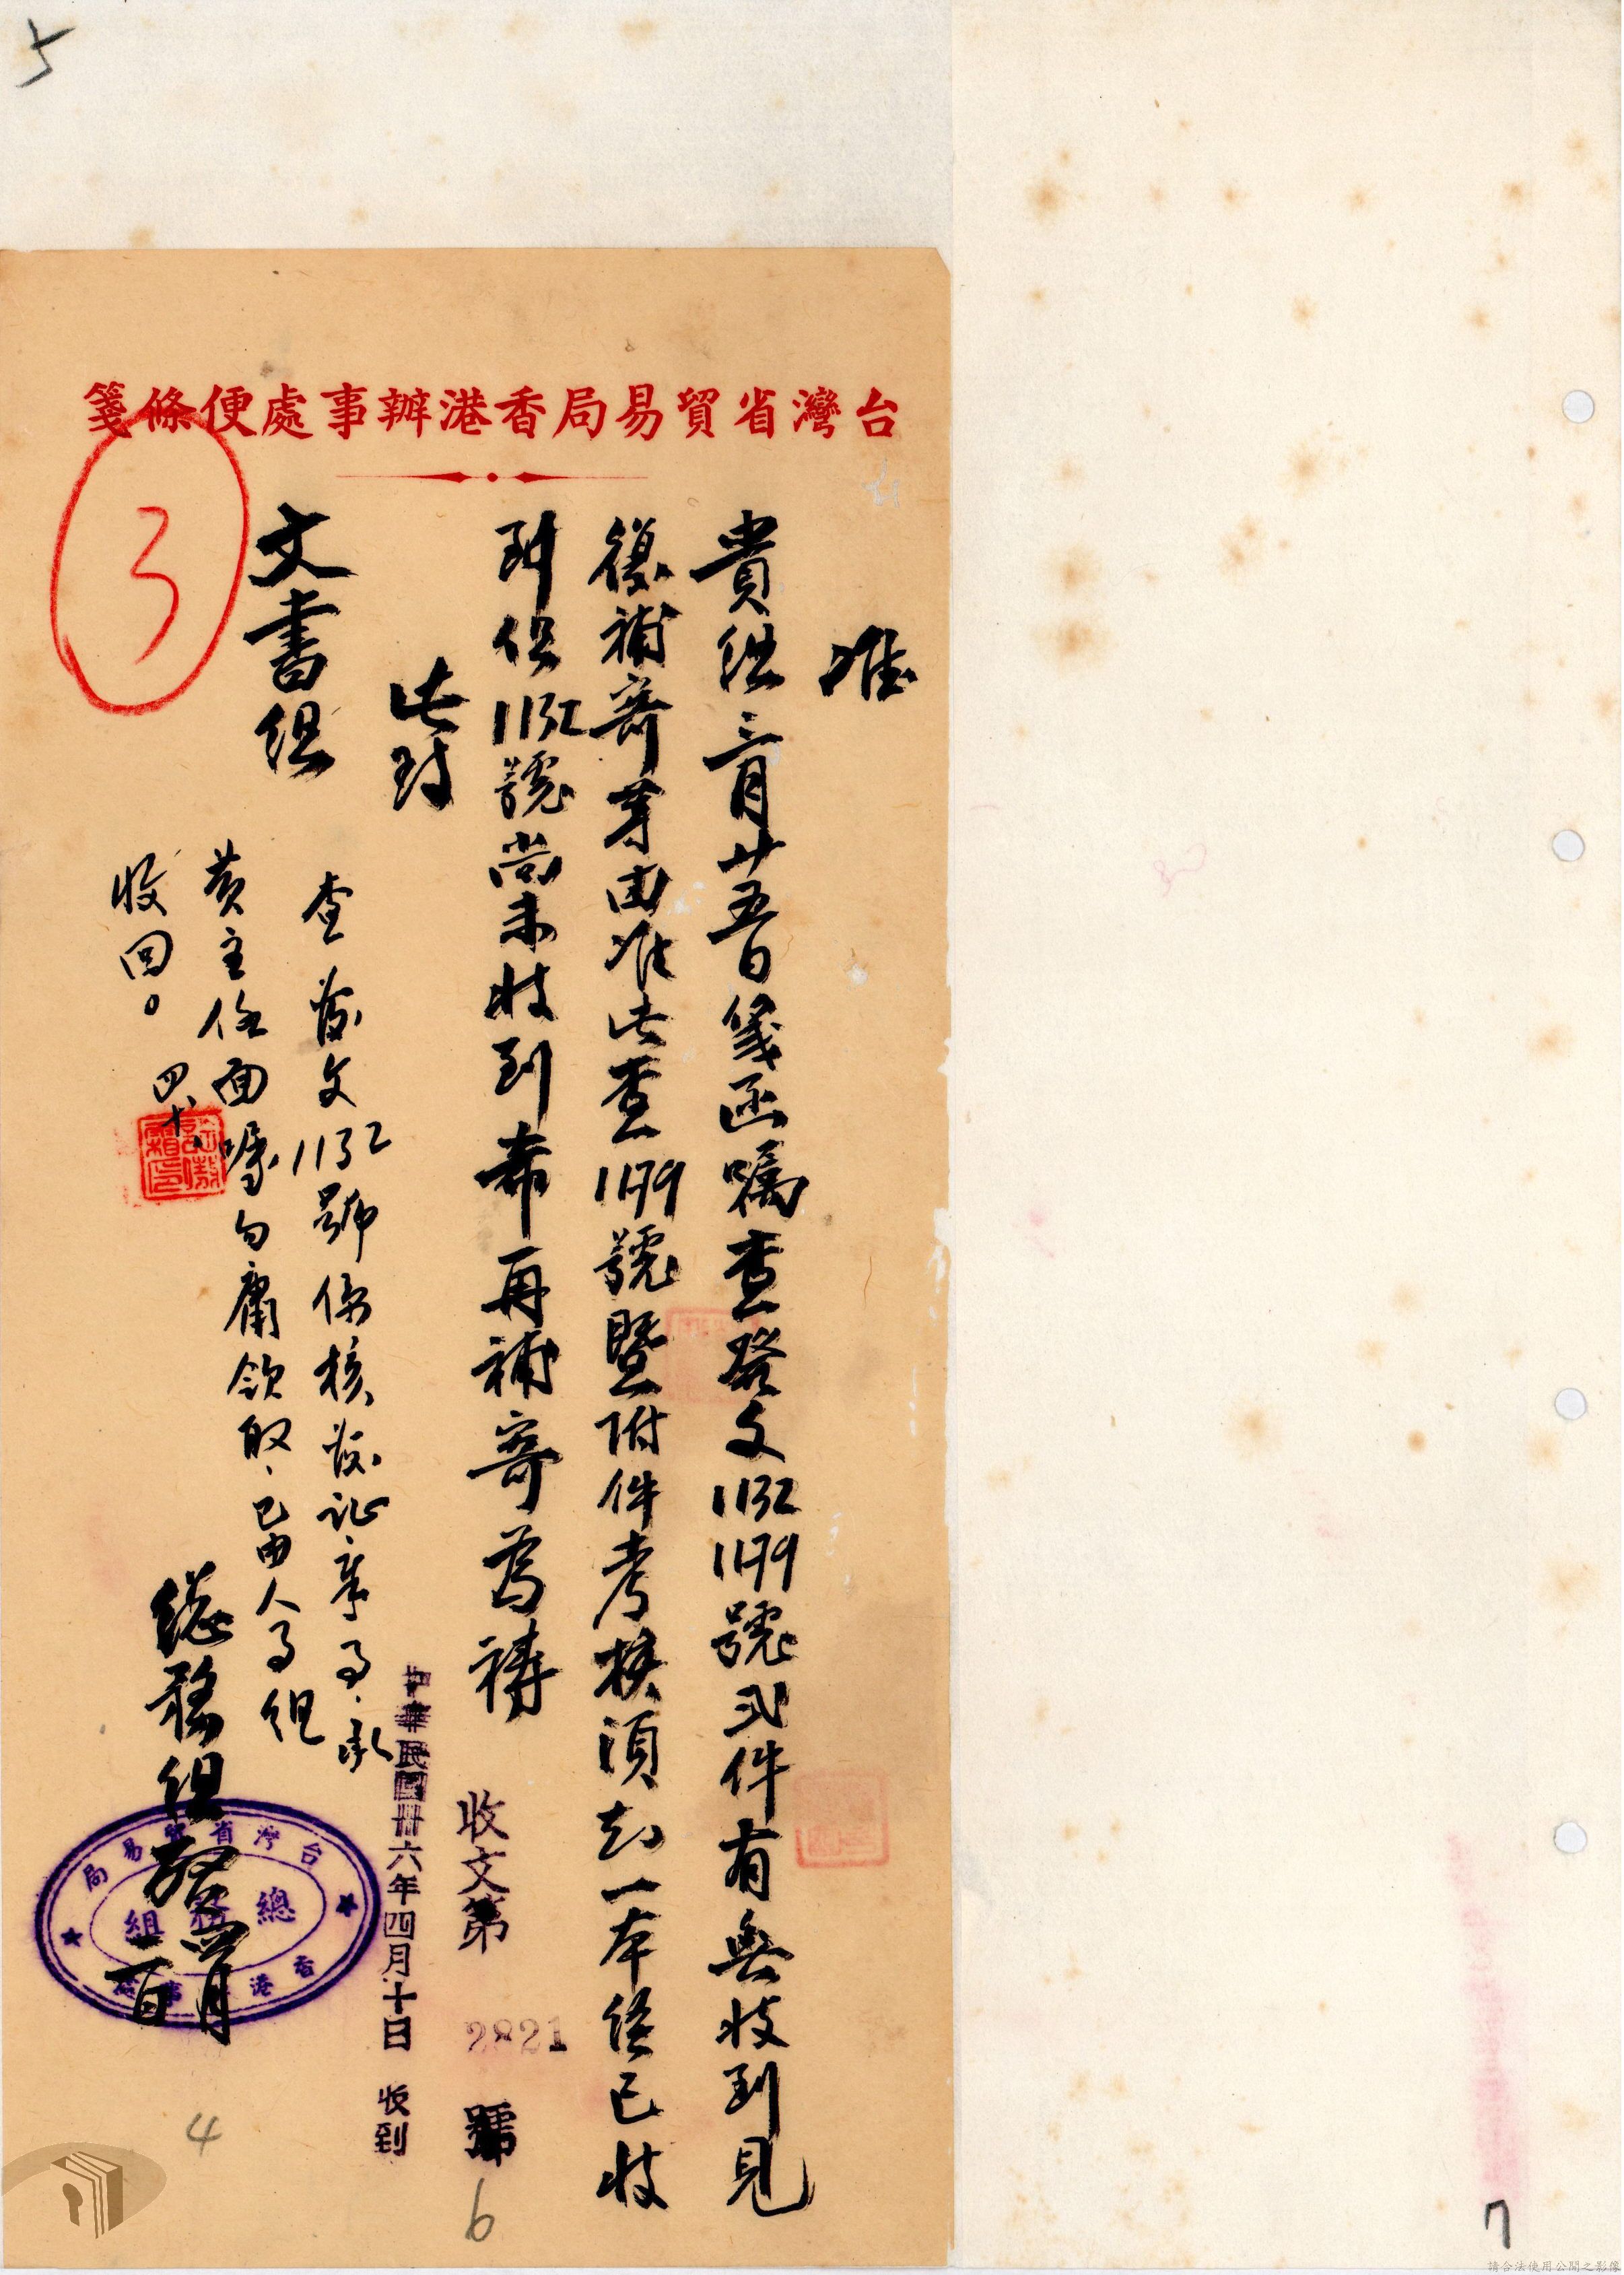 台灣省貿易局香港辦事處便條箋
准
貴組三月廿五日箋函囑查發文1132 1179號弍件有無收到見
復補寄等由准此查1179號暨附件考核須知一本經已收
到但1132號尚未收到希再補寄為禱
此致
文書組
總務組啓四月一日
查發文1132號係核發証章事承
黃主任面囑勿庸領取、已由人事組
收回。
四、十、
收文第2821號
中華民國卅六年四月十日收到
台灣省貿易局
總務組
香港辦事處
3
5
4
6
7
請合法使用公開之影像